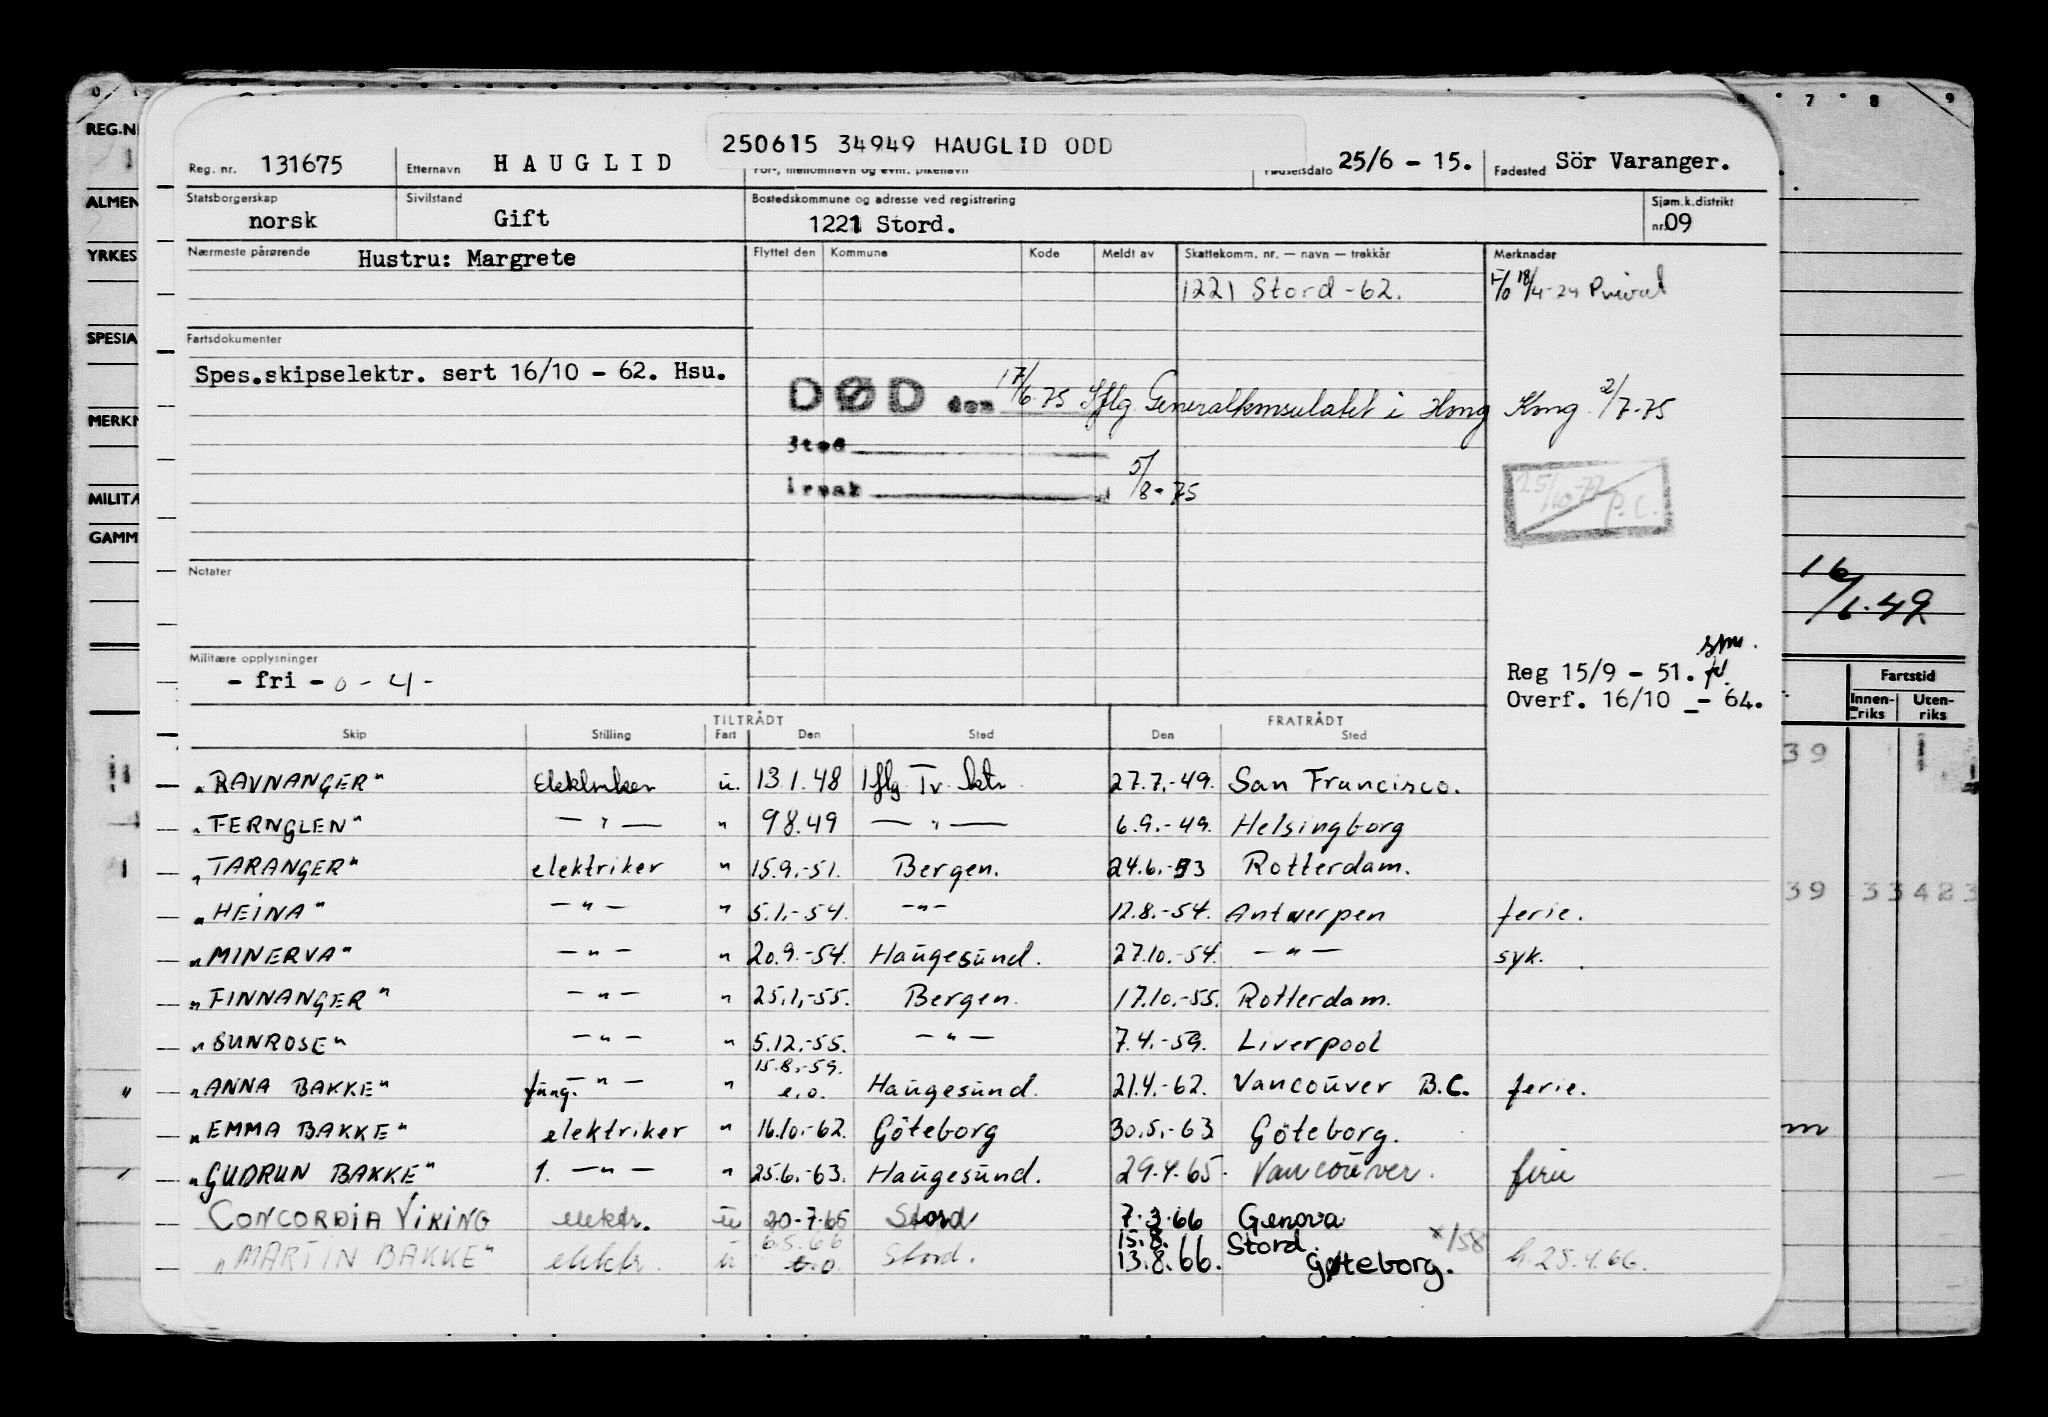 250615 34949 HAUGLID ODD
Reg. nr. 131675 Etternavn HAUGLID For-, mellomnavn og evnt. pikenavn Fødselsdato 25/6 - 15. Fødested Sör Varanger.
Statsborgerskap norsk Sivilstand Gift Bostedskommune og adresse ved registrering 1221 Stord. Sjøm.k.distrikt nr. 09
Nærmeste pårørende Hustru: Margrete Flyttet den Kommune Kode Meldt av Skattekomm. nr. — navn — trekkår Merknader
1221 Stord - 62. 18/4-24 Privat
Fartsdokumenter
Spes.skipselektr. sert 16/10 - 62. Hsu.
DØD den 17/6.75 Iflg Generalkonsulatet i Hong Kong 2/7-75
Sted
Årsak 5/8-75
25/10-77 P.C.
Notater
Militære opplysninger
- fri - 0 - 4 -
Reg 15/9 - 51.
Overf. 16/10 - 64.
TILTRÅDT FRATRÅDT
Skip Stilling Fart Den Sted Den Sted
"RAVNANGER" Elektriker u. 13.1.48 Iflg Tv. ktr 27.7.-49. San Francisco.
"FERNGLEN" — " — " 9 8.49 — " — 6.9.-49. Helsingborg
"TARANGER" elektriker " 15.9.-51. Bergen. 24.6.-53 Rotterdam.
"HEINA" — " — " 5.1.-54. — " — 12.8.-54. Antwerpen ferie.
"MINERVA" — " — " 20.9.-54. Haugesund. 27.10.-54. — " — syk.
"FINNANGER" — " — " 25.1.-55. Bergen. 17.10.-55. Rotterdam.
"SUNROSE" — " — " 5.12.-55. — " — 7.4.-59. Liverpool
"ANNA BAKKE" fung. — " — " 15.8.-59. e.o. Haugesund. 21.4.-62. Vancouver B.C. ferie.
"EMMA BAKKE" elektriker " 16.10.-62. Göteborg 30.5.-63 Göteborg.
"GUDRUN BAKKE" 1. — " — " 25.6.-63. Haugesund. 29.4.65. Vancouver. ferie
CONCORDIA VIKING elektr. u 20-7-65 Stord 7.3.66 Genova
"MARTIN BAKKE" elektr. u 6.5.66 e.o Stord. 15.8. Stord. 13.8.66. Gøteborg. x/58 h. 25.4.66.
REG.N
ALMEN
YRKES
SPESIA
MERKN
MILITÆ
GAMM
7 8 9
16/1.49
Fartstid
Innenriks Utenriks
39
39 33423